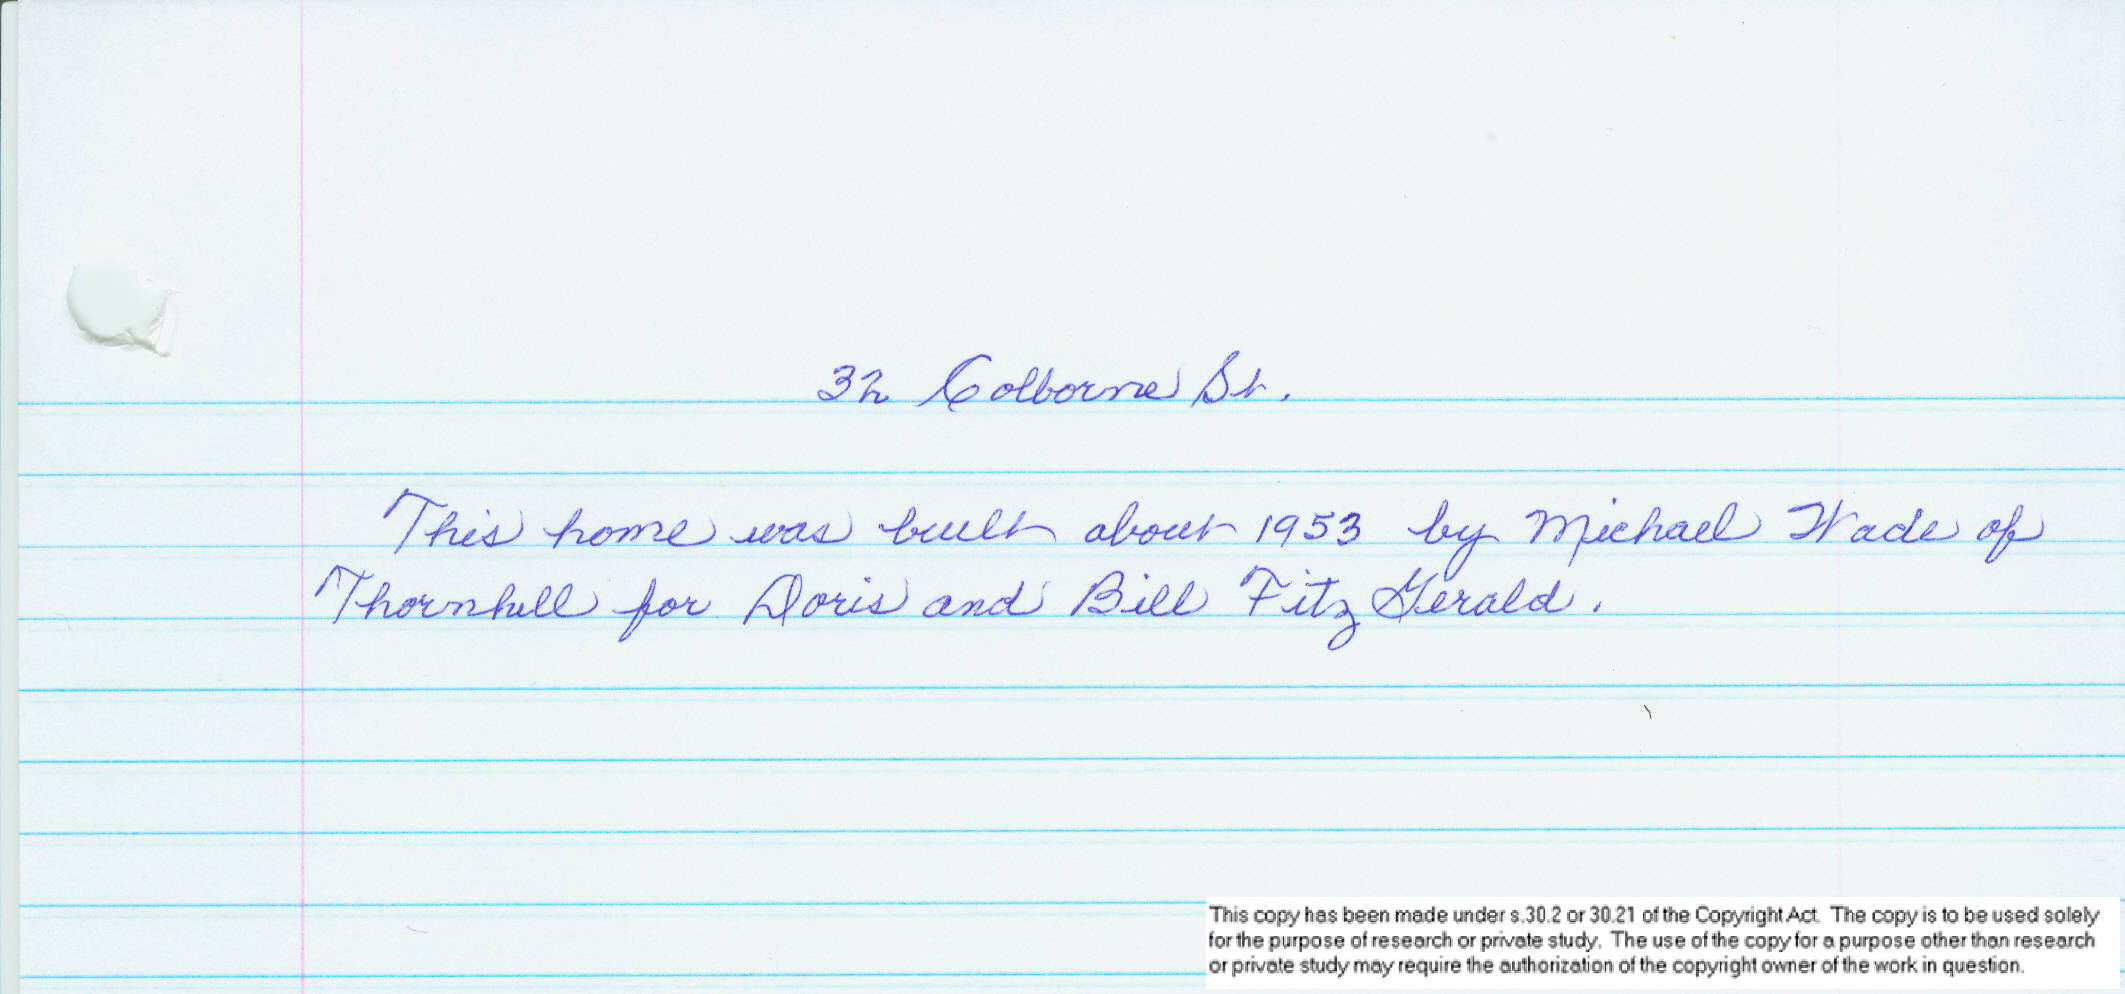 32 Colborne St.
This home was built about 1953 by Michael Wade of
Thornhill for Doris and Bill FitzGerald.
This copy has been made under s.30.2 or 30.21 of the Copyright Act. The copy is to be used solely
for the purpose of research or private study. The use of the copy for a purpose other than research
or private study may require the authorization of the copyright owner of the work in question.